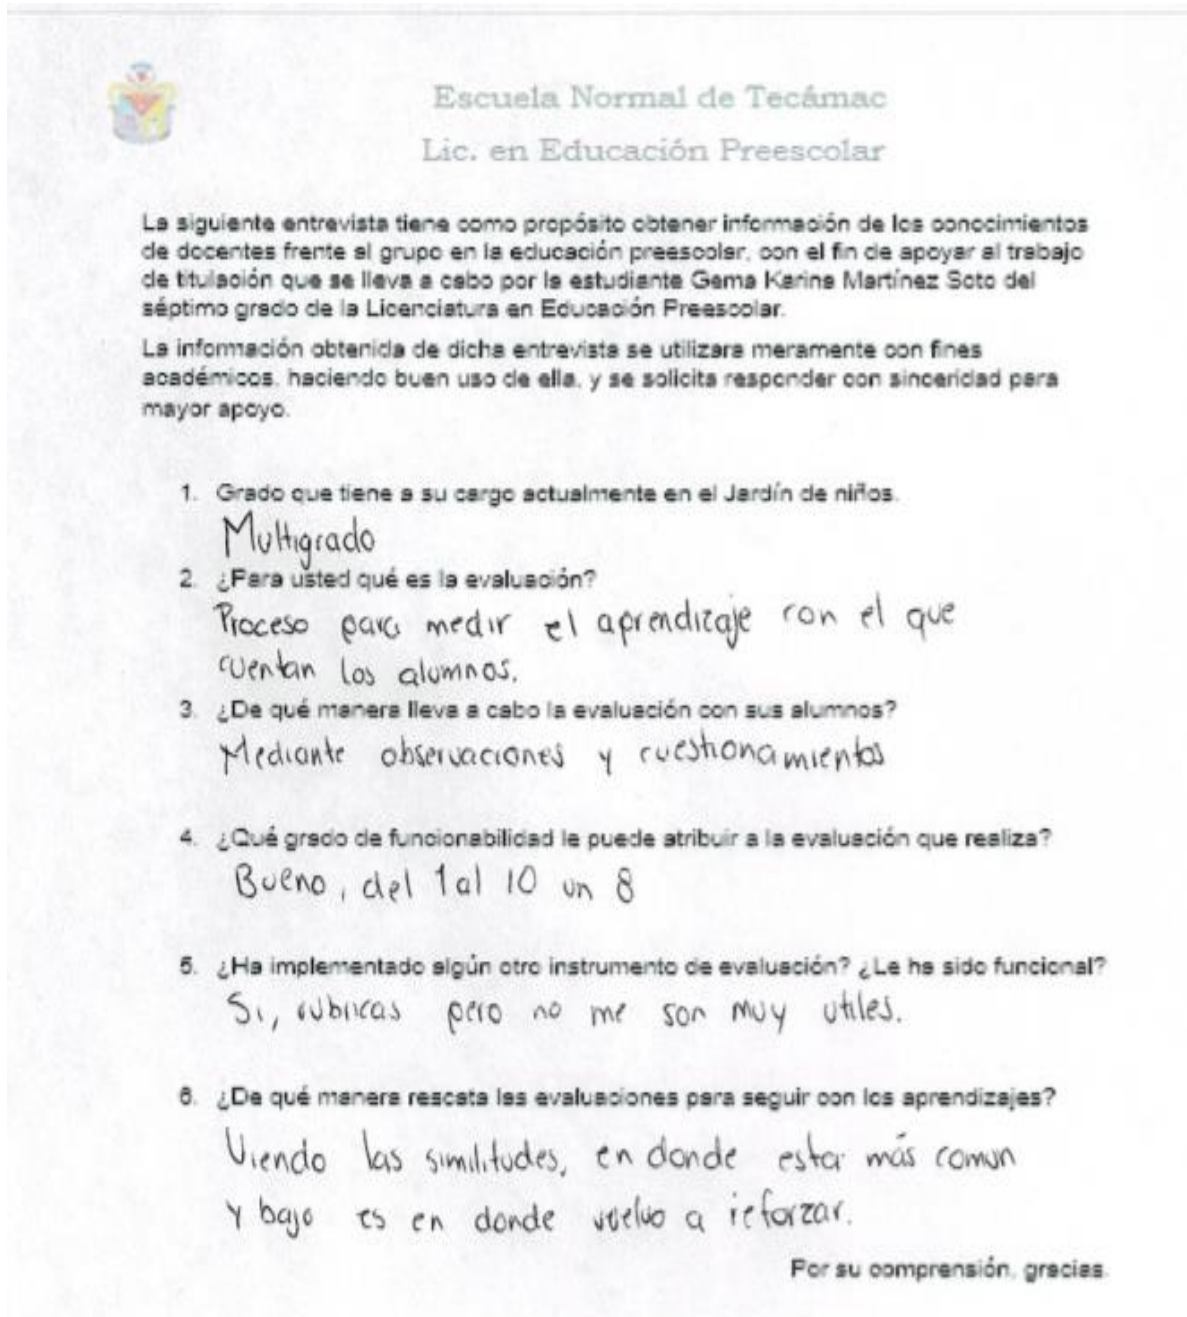 Escuela Normal de Tecámac
Lic. en Educación Preescolar
La siguiente entrevista tiene como propósito obtener información de los conocimientos
de docentes frente al grupo en la educación preescolar, con el fin de apoyar al trabajo
de titulación que se lleva a cabo por la estudiante Gema Karina Martínez Soto del
séptimo grado de la Licenciatura en Educación Preescolar.
La información obtenida de dicha entrevista se utilizara meramente con fines
académicos, haciendo buen uso de ella, y se solicita responder con sinceridad para
mayor apoyo.
1. Grado que tiene a su cargo actualmente en el Jardín de niños.
Multigrado
2. ¿Para usted qué es la evaluación?
Proceso para medir el aprendizaje con el que
cuentan los alumnos.
3. ¿De qué manera lleva a cabo la evaluación con sus alumnos?
Mediante observaciones y cuestionamientos
4. ¿Qué grado de funcionabilidad le puede atribuir a la evaluación que realiza?
Bueno, del 1 al 10 un 8
5. ¿Ha implementado algún otro instrumento de evaluación? ¿Le ha sido funcional?
Si, rubricas pero no me son muy utiles.
6. ¿De qué manera rescata las evaluaciones para seguir con los aprendizajes?
Viendo las similitudes, en donde esta más comun
y bajo es en donde vuelvo a reforzar.
Por su comprensión, gracias.